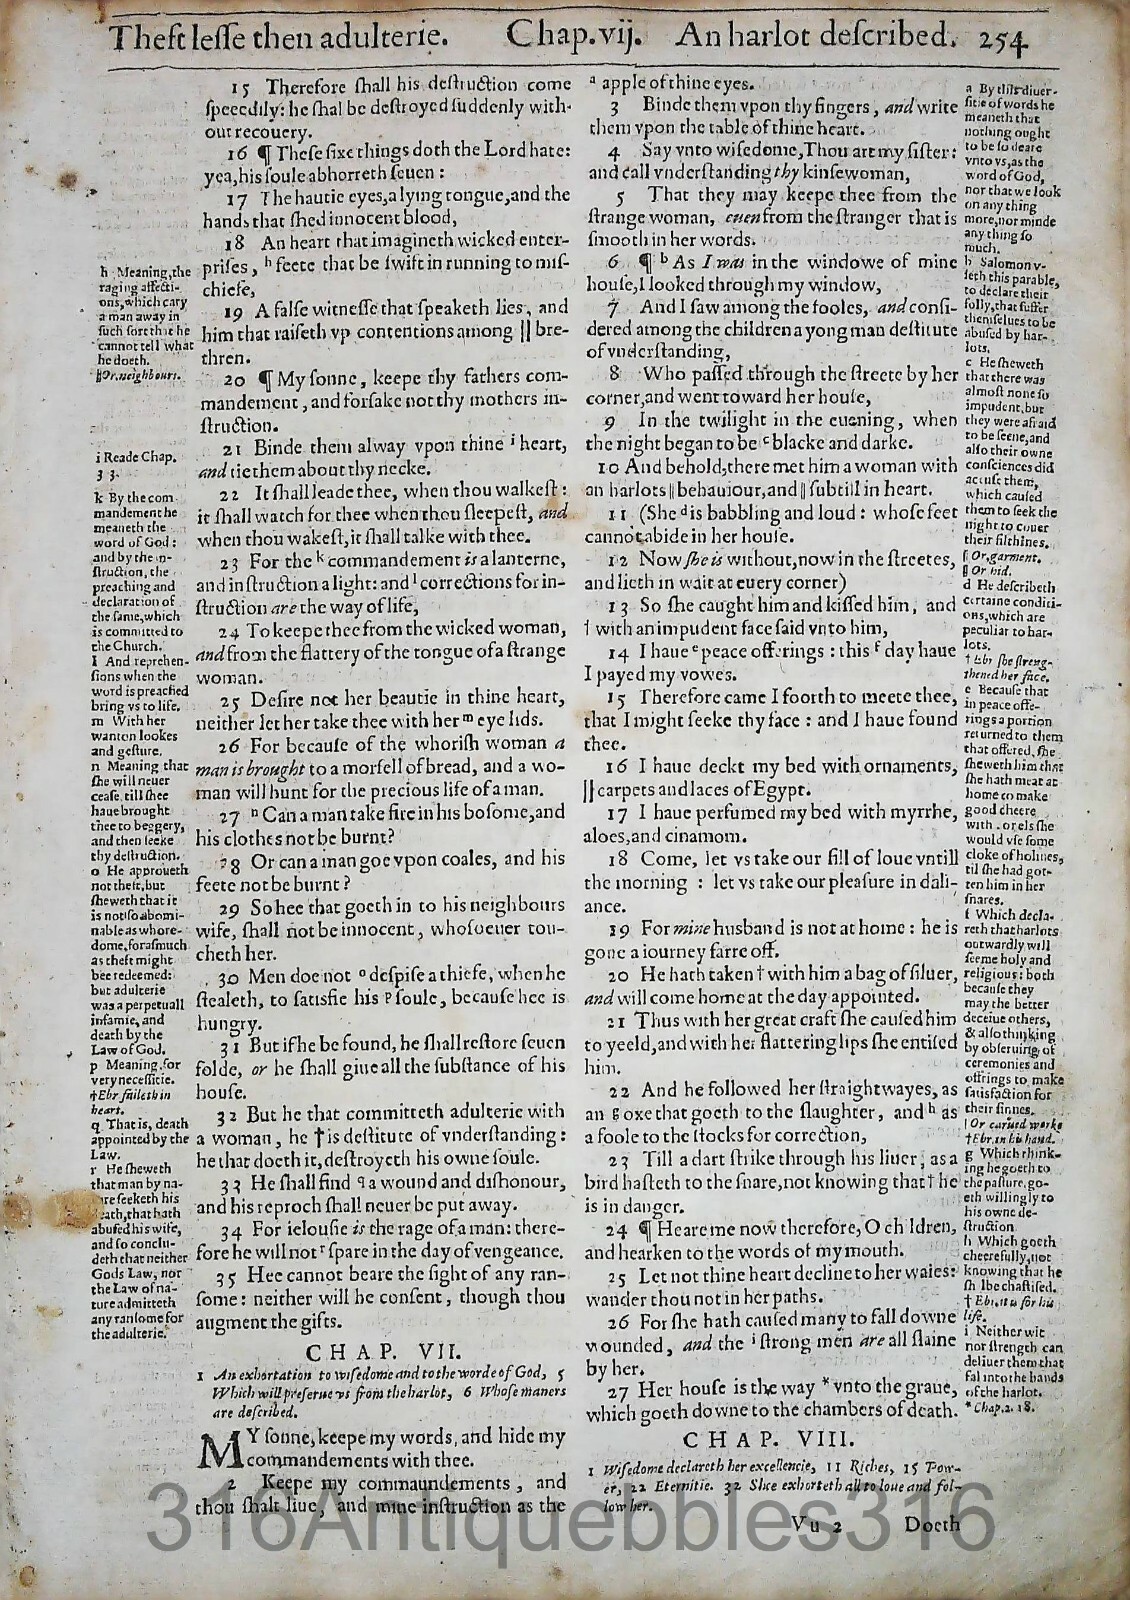 Theft lesse then adulterie. Chap.vij. An harlot described. 254
15 Therefore shall his destruction come
speedily: he shal be destroyed suddenly with-
out recouery.
16 ¶ These sixe things doth the Lord hate:
yea, his soule abhorreth seuen:
17 The hautie eyes, a lying tongue, and the
hands that shed innocent blood,
18 An heart that imagineth wicked enter-
prises, h feete that be swift in running to mis-
chiefe,
19 A false witnesse that speaketh lies, and
him that raiseth vp contentions among || bre-
thren.
20 ¶ My sonne, keepe thy fathers com-
mandement, and forsake not thy mothers in-
struction.
21 Binde them alway vpon thine i heart,
and tie them about thy necke.
22 It shall leade thee, when thou walkest:
it shall watch for thee when thou sleepest, and
when thou wakest, it shall talke with thee.
23 For the k commandement is a lanterne,
and instruction a light: and l corrections for in-
struction are the way of life,
24 To keepe thee from the wicked woman,
and from the flattery of the tongue of a strange
woman.
25 Desire not her beautie in thine heart,
neither let her take thee with her m eye lids.
26 For because of the whorish woman a
man is brought to a morsell of bread, and a wo-
man will hunt for the precious life of a man.
27 n Can a man take fire in his bosome, and
his clothes not be burnt?
28 Or can a man goe vpon coales, and his
feete not be burnt?
29 So hee that goeth in to his neighbours
wife, shall not be innocent, whosoeuer tou-
cheth her.
30 Men doe not o despise a thiefe, when he
stealeth, to satisfie his p soule, because hee is
hungry.
31 But if he be found, he shall restore seuen
folde, or he shall giue all the substance of his
house.
32 But he that committeth adulterie with
a woman, he † is destitute of vnderstanding:
he that doeth it, destroyeth his owne soule.
33 He shall find q a wound and dishonour,
and his reproch shall neuer be put away.
34 For ielousie is the rage of a man: there-
fore he will not r spare in the day of vengeance.
35 Hee cannot beare the sight of any ran-
some: neither will he consent, though thou
augment the gifts.
CHAP. VII.
1 An exhortation to wisedome and to the worde of God, 5
Which will preserue vs from the harlot, 6 Whose maners
are described.
MY sonne, keepe my words, and hide my
commandements with thee.
2 Keepe my commaundements, and
thou shalt liue, and mine instruction as the
h Meaning, the
raging affecti-
ons, which cary
a man away in
such sort that he
cannot tell what
he doeth.
||Or, neighbours.
i Reade Chap.
3 3.
k By the com
mandement he
meaneth the
word of God:
and by the in-
struction, the
preaching and
declaration of
the same, which
is committed to
the Church.
l And reprehen-
sions when the
word is preached
bring vs to life.
m With her
wanton lookes
and gesture.
n Meaning that
she will neuer
cease, till shee
haue brought
thee to beggery,
and then seeke
thy destruction.
o He approueth
not theft, but
sheweth that it
is not so abomi-
nable as whore-
dome, forasmuch
as theft might
bee redeemed:
but adulterie
was a perpetuall
infamie, and
death by the
Law of God.
p Meaning, for
very necessitie.
†Ebr. faileth in
heart.
q That is, death
appointed by the
Law.
r He sheweth
that man by na-
ure seeketh his
eath, that hath
abused his wife,
and so conclu-
deth that neither
Gods Law, nor
the Law of na-
ture admitteth
any ransome for
the adulterie.
a apple of thine eyes.
3 Binde them vpon thy fingers, and write
them vpon the table of thine heart.
4 Say vnto wisedome, Thou art my sister:
and call vnderstanding thy kinsewoman,
5 That they may keepe thee from the
strange woman, euen from the stranger that is
smooth in her words.
6 ¶ b As I was in the windowe of mine
house, I looked through my window,
7 And I saw among the fooles, and consi-
dered among the children a yong man destitute
of vnderstanding,
8 Who passed through the streete by her
corner, and went toward her house,
9 In the twilight in the euening, when
the night began to be c blacke and darke.
10 And behold, there met him a woman with
an harlots || behauiour, and || subtill in heart.
11 (She d is babbling and loud: whose feet
cannot abide in her house.
12 Now she is without, now in the streetes,
and lieth in wait at euery corner)
13 So she caught him and kissed him, and
† with an impudent face said vnto him,
14 I haue e peace offerings: this f day haue
I payed my vowes.
15 Therefore came I foorth to meete thee,
that I might seeke thy face: and I haue found
thee.
16 I haue deckt my bed with ornaments,
|| carpets and laces of Egypt.
17 I haue perfumed my bed with myrrhe,
aloes, and cinamom.
18 Come, let vs take our fill of loue vntill
the morning : let vs take our pleasure in dali-
ance.
19 For mine husband is not at home: he is
gone a iourney farre off.
20 He hath taken † with him a bag of siluer,
and will come home at the day appointed.
21 Thus with her great craft she caused him
to yeeld, and with her flattering lips she entised
him.
22 And he followed her straightwayes, as
an g oxe that goeth to the slaughter, and h as
a foole to the stocks for correction,
23 Till a dart strike through his liuer, as a
bird hasteth to the snare, not knowing that † he
is in danger.
24 ¶ Heare me now therefore, O children,
and hearken to the words of my mouth.
25 Let not thine heart decline to her waies:
wander thou not in her paths.
26 For she hath caused many to fall downe
wounded, and the i strong men are all slaine
by her.
27 Her house is the way * vnto the graue,
which goeth downe to the chambers of death.
CHAP. VIII.
1 Wisedome declareth her excellencie, 11 Riches, 15 Pow-
er, 22 Eternitie. 32 Shee exhorteth all to loue and fol-
low her.
Vu 2 Doeth
a By this diuer-
sitie of words he
meaneth that
nothing ought
to be so deare
vnto vs, as the
word of God,
nor that we look
on any thing
more, nor minde
any thing so
much.
b Salomon v-
seth this parable,
to declare their
folly, that suffer
themselues to be
abused by har-
lots.
c He sheweth
that there was
almost none so
impudent, but
they were afraid
to be seene, and
also their owne
consciences did
accuse them,
which caused
them to seek the
night to couer
their filthines.
||Or, garment.
||Or hid.
d He describeth
certaine conditi-
ons, which are
peculiar to har-
lots.
†Ebr she streng-
thened her face.
e Because that
in peace offe-
rings a portion
returned to them
that offered, she
sheweth him that
she hath meat at
home to make
good cheere
with. or els she
would vse some
cloke of holines,
til she had got-
ten him in her
snares.
f Which decla-
reth that harlots
outwardly will
seeme holy and
religious: both
because they
may the better
deceiue others,
& also thinking
by obseruing of
ceremonies and
offrings to make
satisfaction for
their sinnes.
||Or carued worke
†Ebr. in his hand.
g Which think-
ing he goeth to
the pasture, go-
eth willingly to
his owne de-
struction
h Which goeth
cheerefully, not
knowing that he
sh lbe chastised.
†Ebr. it is for his
life.
i Neither wit
nor strength can
deliuer them that
fal into the hands
of the harlot.
* Chap. 2. 18.
316Antiquebbles316